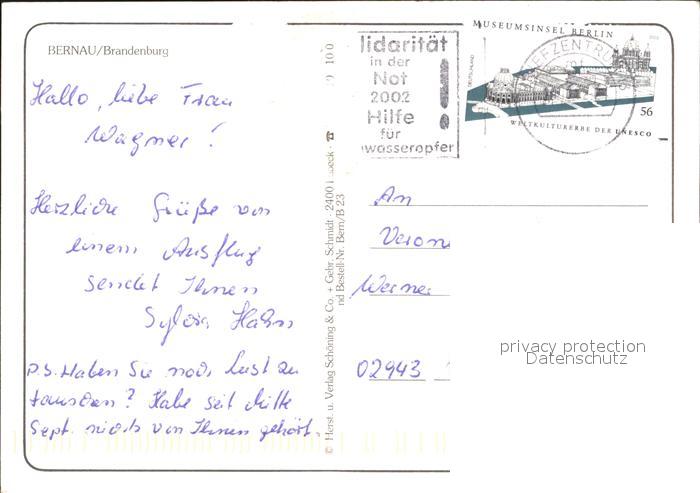 BERNAU/Brandenburg
Hallo, liebe Frau
Wagner!
Herzliche Grüße von
einem Ausflug
sendet Ihnen
Sylvia Hahn
P.S. Haben Sie noch Lust zu
tauschen? Habe seit Mitte
Sept. nichts von Ihnen gehört.
© Herst. u. Verlag Schöning & Co. + Gebr. Schmidt · 24001 Lübeck ·
nd Bestell-Nr. Bern/B 23
lidarität
in der
Not
2002
Hilfe
für
wasseropfer
!
MUSEUMSINSEL BERLIN
DEUTSCHLAND
56
WELTKULTURERBE DER UNESCO
EFZENTR
An
Veron
Werner
02943
privacy protection
Datenschutz